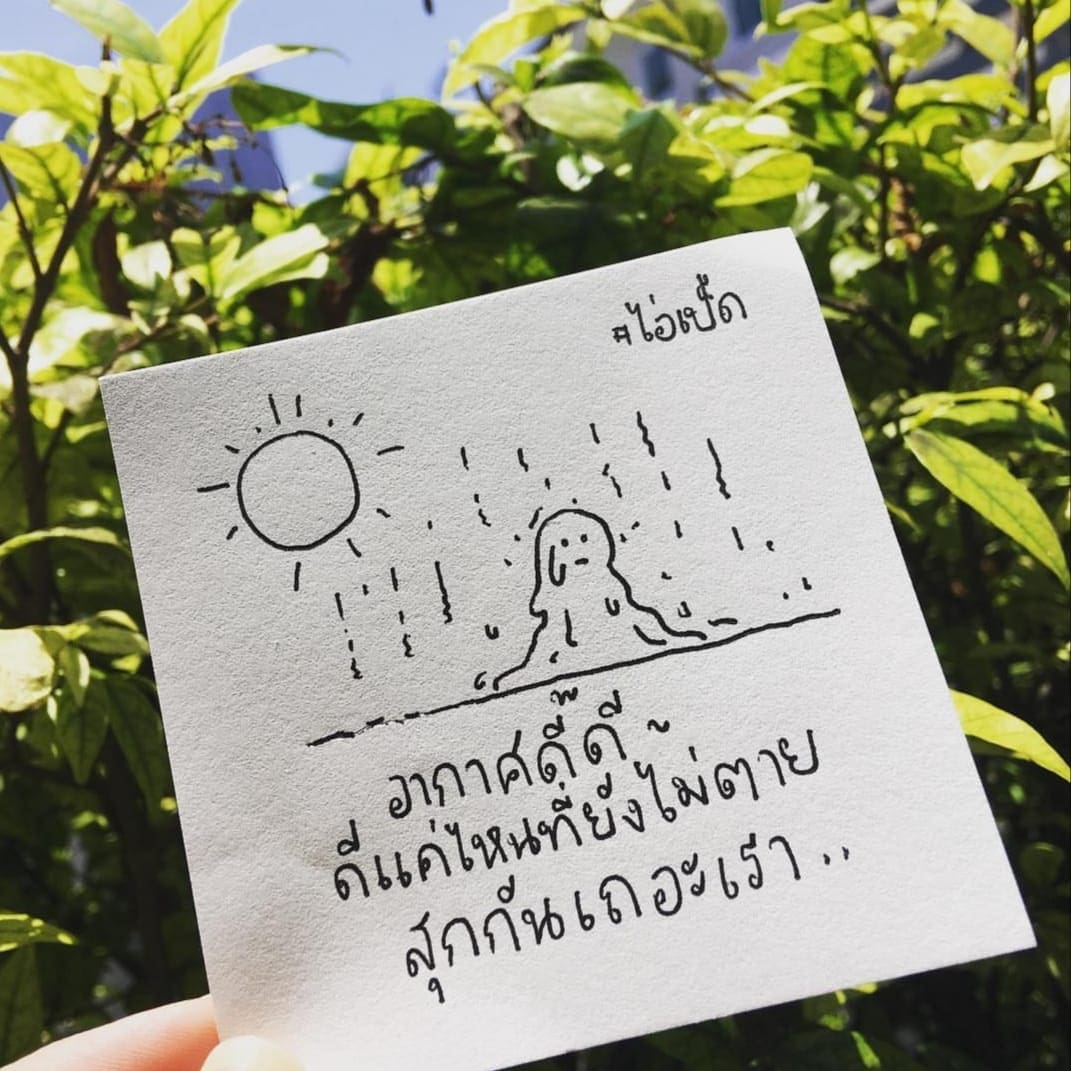 #ไอ่เป้ด
อากาศดี๊ดี
ดีแค่ไหนที่ยังไม่ตาย
สุกกันเถอะเรา..